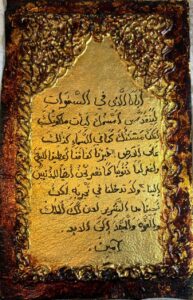 أبانا الذي في السموات
ليتقدس اسمك ليأت ملكوتك
لتكن مشيئتك كما في السماء كذلك
على الارض خبزنا كفافنا أعطنا اليوم
واغفر لنا ذنوبنا كما نغفر نحن أيضا للمذنبين
إلينا ولا تدخلنا في تجربة لكن
نجنا من الشرير لان لك الملك
والقوة والمجد إلى الابد
آمين.